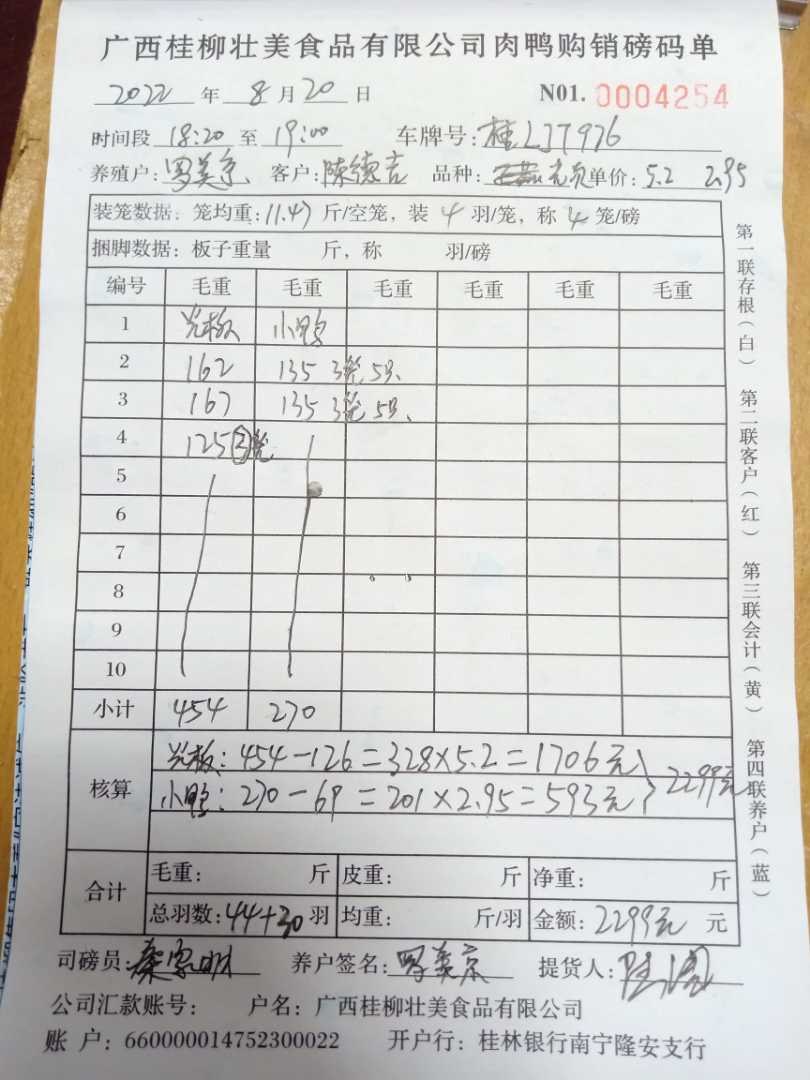 广西桂柳壮美食品有限公司肉鸭购销磅码单
2022 年 8 月 20 日 N01. 0004254
时间段 18:20 至 19:00 车牌号: 桂LJT976
养殖户: 罗美京 客户: 陈德吉 品种: 单价: 5.2 2.95
装笼数据: 笼均重: 11.47 斤/空笼, 装 4 羽/笼, 称 4 笼/磅
捆脚数据: 板子重量 斤, 称 羽/磅
编号 毛重 毛重 毛重 毛重 毛重 毛重
1 光板 小鸭
2 162 135 3笼 5只
3 167 135 3笼 5只
4 125 3笼
5
6
7
8
9
10
小计 454 270
核算
光板: 454-126=328×5.2=1706元
小鸭: 270-69=201×2.95=593元 } 2299元
合计
毛重: 斤 皮重: 斤 净重: 斤
总羽数: 44+30 羽 均重: 斤/羽 金额: 2299元 元
司磅员: 养户签名: 罗美京 提货人:
公司汇款账号: 户名: 广西桂柳壮美食品有限公司
账 户: 660000014752300022 开户行: 桂林银行南宁隆安支行
第一联存根(白) 第二联客户(红) 第三联会计(黄) 第四联养户(蓝)